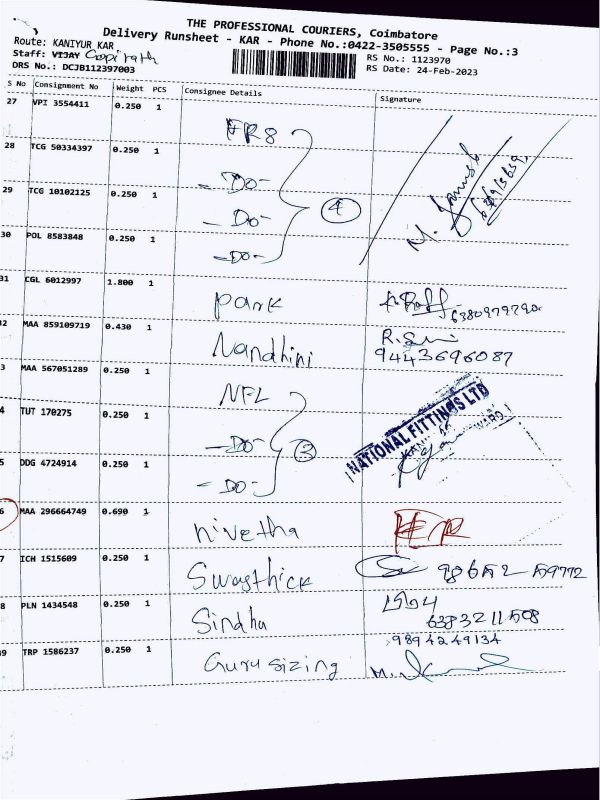 THE PROFESSIONAL COURIERS, Coimbatore
Delivery Runsheet - KAR - Phone No.:0422-3505555 - Page No.:3
Route: KANIYUR KAR
RS No.: 1123970
Staff: VIJAY
RS Date: 24-Feb-2023
DRS No.: DCJB112397003
S No Consignment No Weight PCS Consignee Details Signature
27 VPI 3554411 0.250 1 FR8
28 TCG 50334397 0.250 1 -Do-
29 TCG 10102125 0.250 1 -Do- 4
30 POL 8583848 0.250 1 -Do-
31 CGL 6012997 1.800 1 park
2 MAA 859109719 0.430 1 Nandhini
9443696087
3 MAA 567051289 0.250 1 NFL
4 TUT 170275 0.250 1 -Do- 3
NATIONAL FITTINGS LTD
5 DDG 4724914 0.250 1 -Do-
6 MAA 296664749 0.690 1 nivetha
7 ICH 1515609 0.250 1 Swasthick
8 PLN 1434548 0.250 1 Sindha
6383211508
9894249134
39 TRP 1586237 0.250 1 Guru sizing